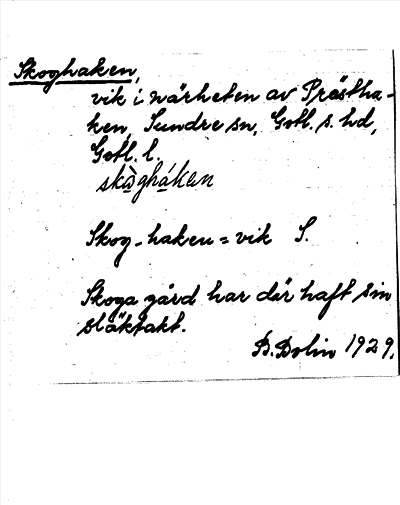 Skoghaken,
vik i närheten av Prästha-
ken, Sundre sn, Gotl. s. hd,
Gotl. l.
skàgháken
Skog-haken = vik S.
Skoga gård har där haft sin
släktakt.
D. Bolin 1929.